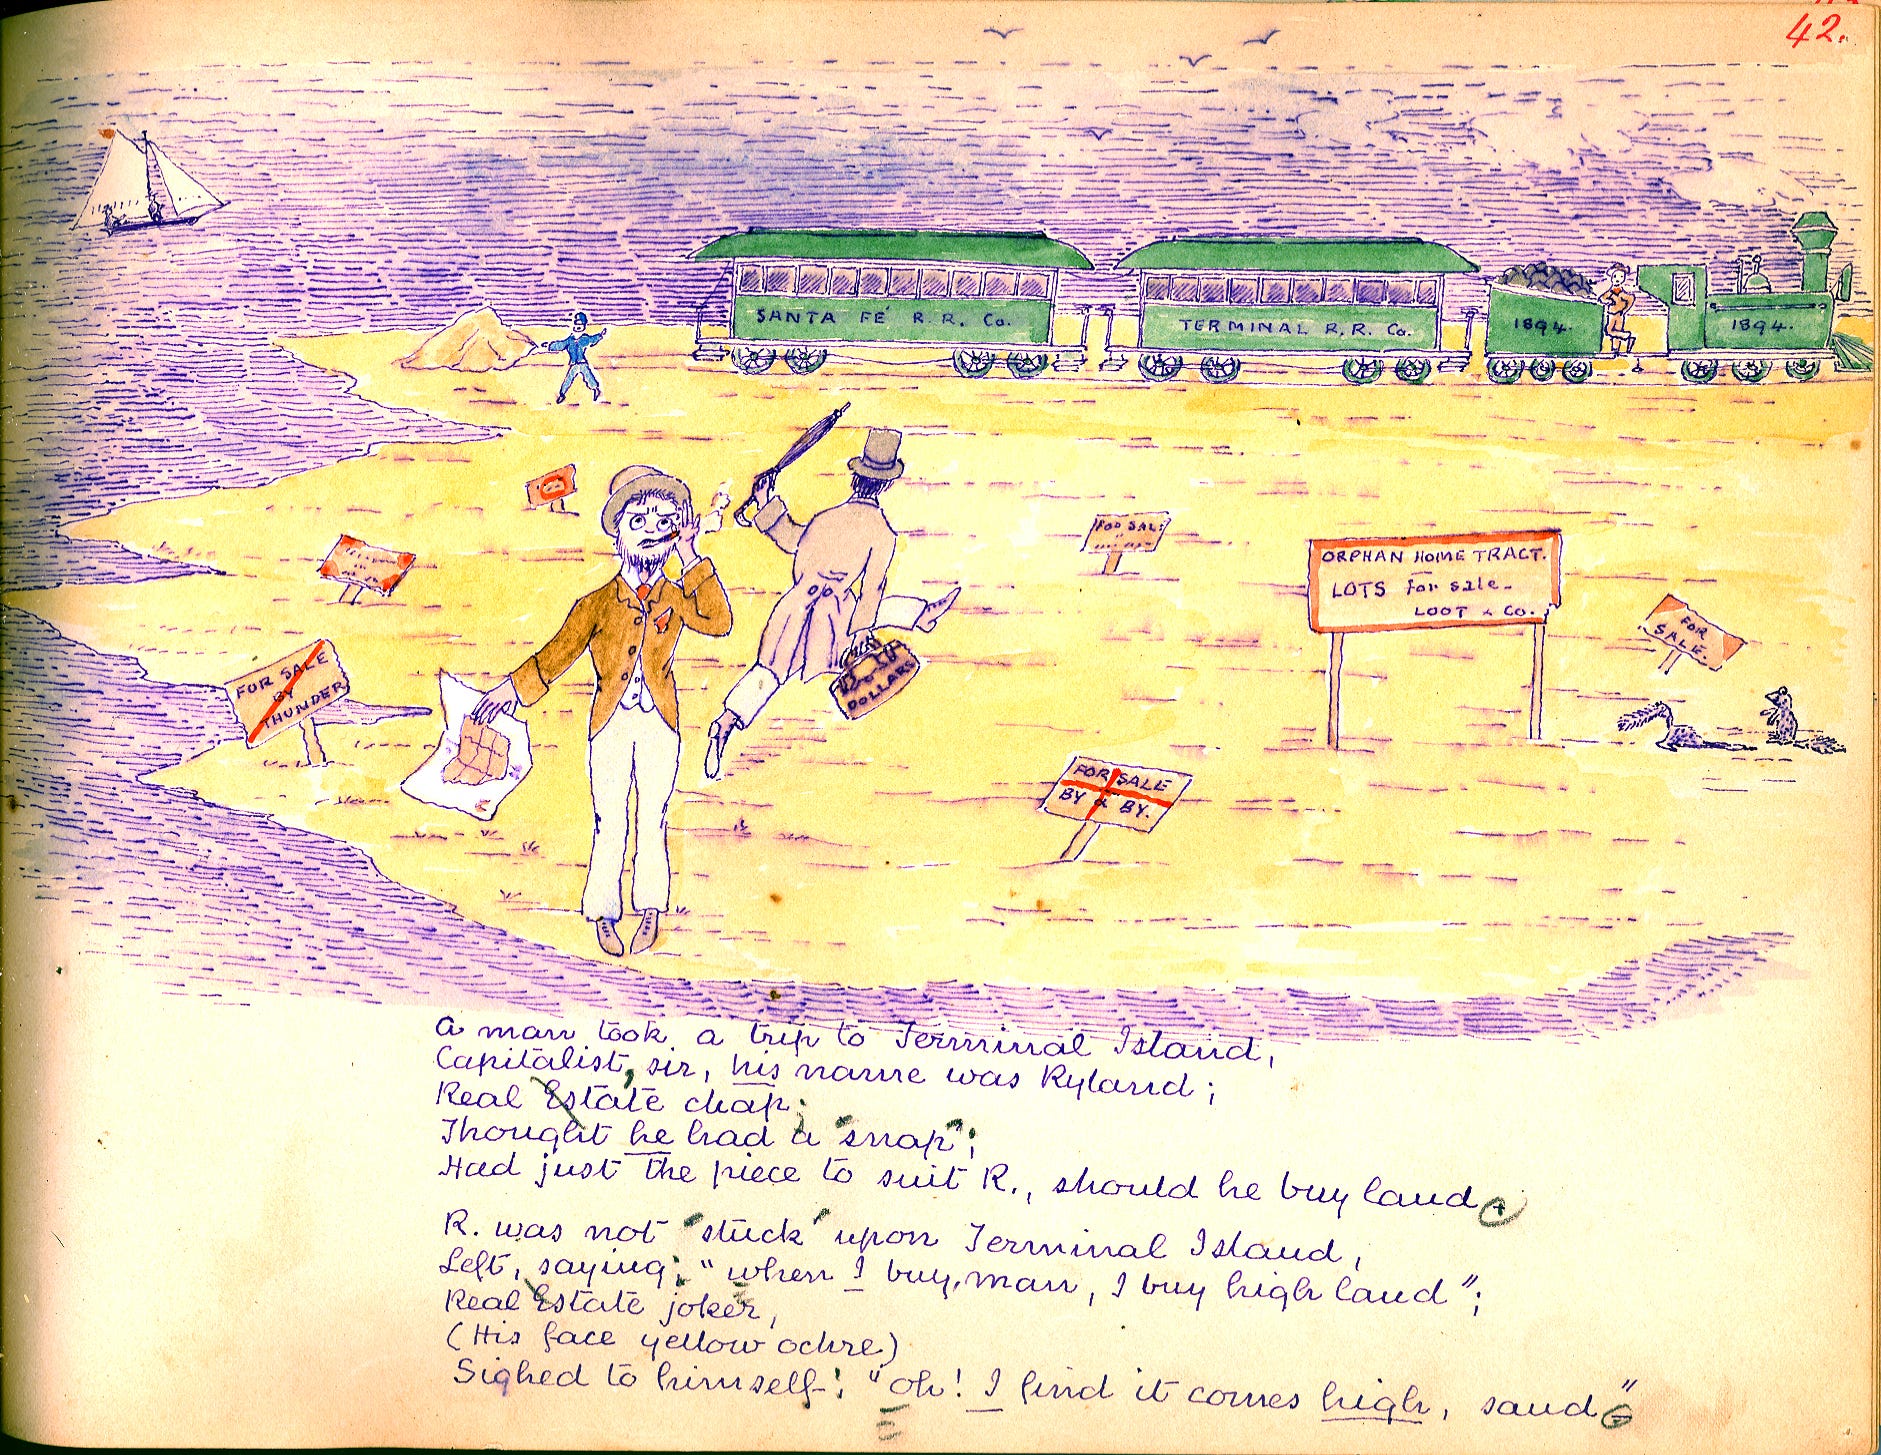 42.
SANTA FÉ R. R. Co.
TERMINAL R. R. Co.
1894.
1894.
FOR SALE
ORPHAN HOME TRACT.
LOTS for sale.
LOOT & Co.
FOR
SALE.
FOR SALE
BY
THUNDER
DOLLARS
FOR SALE
BY & BY.
A man took a trip to Terminal Island,
Capitalist, sir, his name was Ryland;
Real Estate chap;
Thought he had a "snap";
Had just the piece to suit R., should he buy land.
R. was not "stuck" upon Terminal Island,
Left, saying; "when I buy, man, I buy high land";
Real Estate joker,
(His face yellow ochre)
Sighed to himself: "oh! I find it comes high, sand"